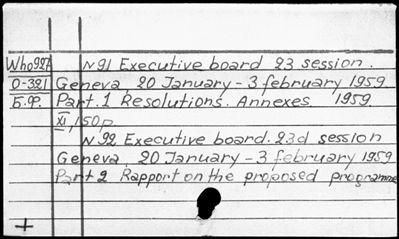 Who927 N 91 Executive board 23 session.
O-321 Geneva, 20 January - 3 february 1959
Б.Ф. Part. 1 Resolutions. Annexes. 1959
XI, 150p.
N 92 Executive board. 23d session
Geneva, 20 January - 3 february 1959
Part 2 Rapport on the proposed programme
+